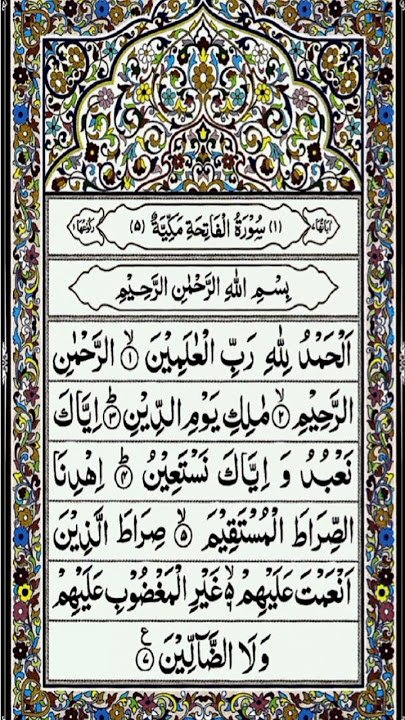 اٰيَاتُهَا ٧ (١) سُوْرَةُ الْفَاتِحَةِ مَكِّيَّةٌ (٥) رُكُوْعُهَا ١
بِسْمِ اللّٰهِ الرَّحْمٰنِ الرَّحِيْمِ
اَلْحَمْدُ لِلّٰهِ رَبِّ الْعٰلَمِيْنَ ۙ﴿١﴾ الرَّحْمٰنِ
الرَّحِيْمِ ۙ﴿٢﴾ مٰلِكِ يَوْمِ الدِّيْنِ ؕ﴿٣﴾ اِيَّاكَ
نَعْبُدُ وَ اِيَّاكَ نَسْتَعِيْنُ ؕ﴿٤﴾ اِهْدِنَا
الصِّرَاطَ الْمُسْتَقِيْمَ ۙ﴿٥﴾ صِرَاطَ الَّذِيْنَ
اَنْعَمْتَ عَلَيْهِمْ ۙ۬﴿٦﴾ غَيْرِ الْمَغْضُوْبِ عَلَيْهِمْ
وَلَا الضَّآلِّيْنَ ࣖ﴿٧﴾